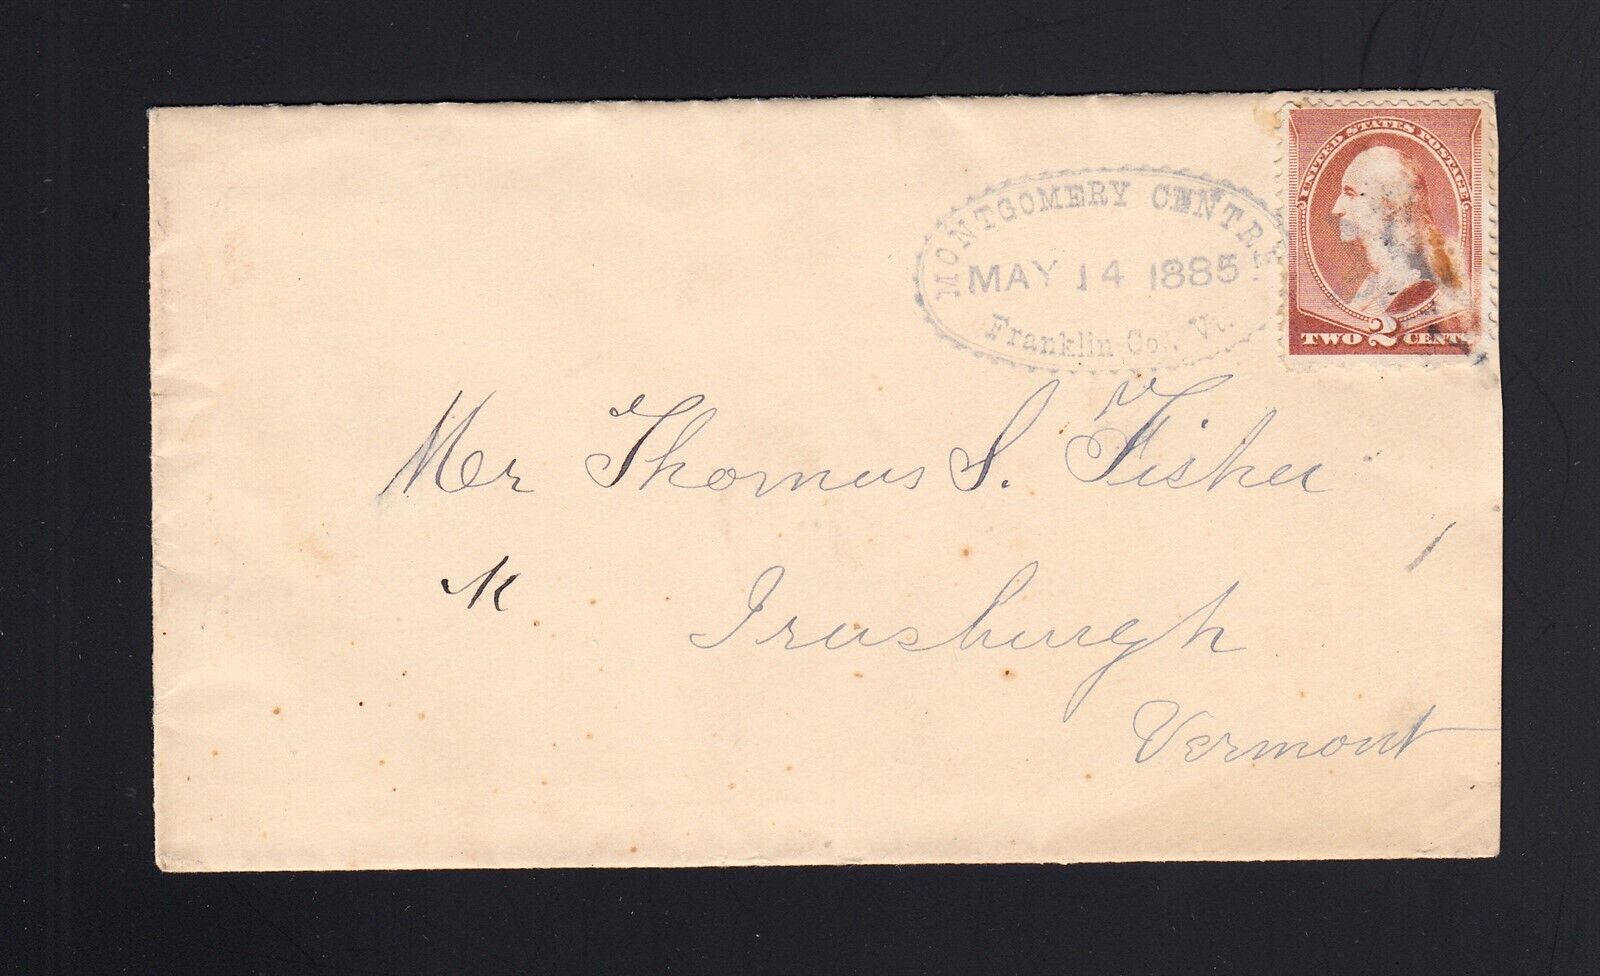 UNITED STATES POSTAGE
TWO 2 CENTS
MONTGOMERY CENTRE
MAY 14 1885
Franklin Co., Vt.
Mr Thomas S. Fisher
Irasburgh
Vermont